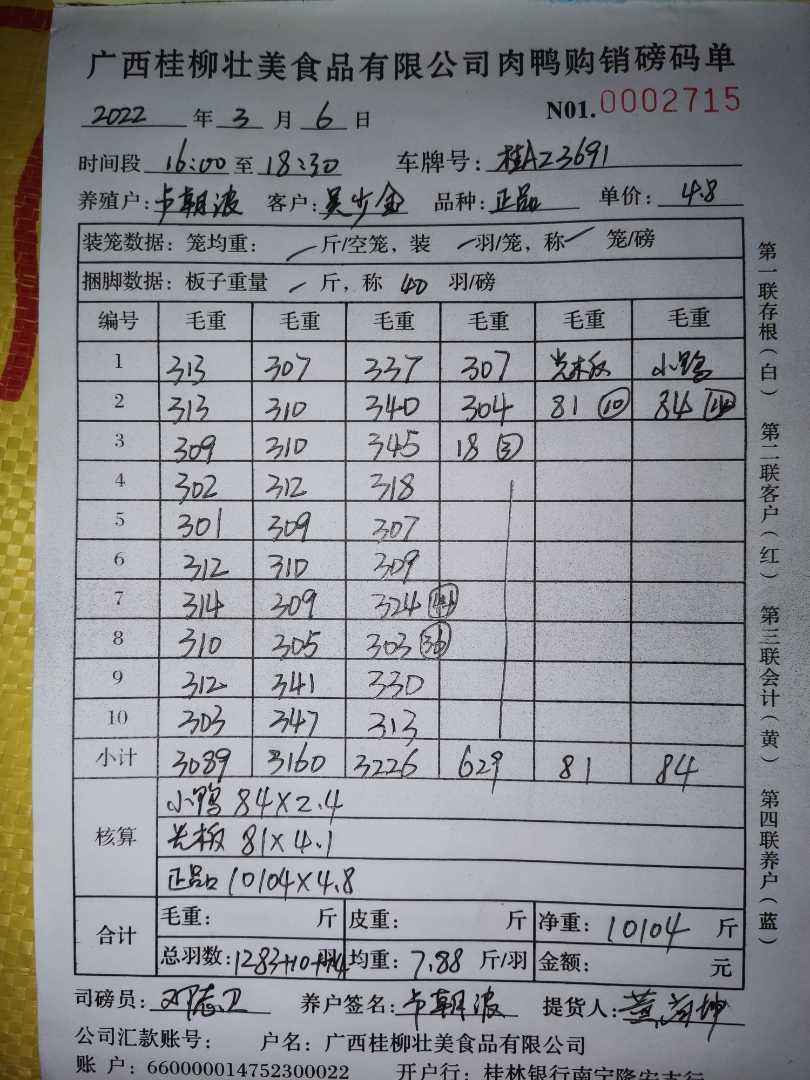 广西桂柳壮美食品有限公司肉鸭购销磅码单
2022 年 3 月 6 日 N01.0002715
时间段 16:00 至 18:30 车牌号: 桂AZ3691
养殖户: 卢朝波 客户: 吴少金 品种: 正品 单价: 4.8
装笼数据: 笼均重: 斤/空笼, 装 羽/笼, 称 笼/磅
捆脚数据: 板子重量 斤, 称 40 羽/磅
编号 毛重 毛重 毛重 毛重 毛重 毛重
1 313 307 337 307 光板 小鸭
2 313 310 340 304 81 (10) 84 (14)
3 309 310 345 18 (3)
4 302 312 318
5 301 309 307
6 312 310 309
7 314 309 324 (44)
8 310 305 303 (36)
9 312 341 330
10 303 347 313
小计 3089 3160 3226 629 81 84
核算
小鸭 84×2.4
光板 81×4.1
正品 10104×4.8
合计
毛重: 斤 皮重: 斤 净重: 10104 斤
总羽数: 1283+10+14 羽 均重: 7.88 斤/羽 金额: 元
司磅员: 邓志卫 养户签名: 卢朝波 提货人:
公司汇款账号: 户名: 广西桂柳壮美食品有限公司
账 户: 660000014752300022 开户行: 桂林银行南宁隆安支行
第一联存根(白) 第二联客户(红) 第三联会计(黄) 第四联养户(蓝)